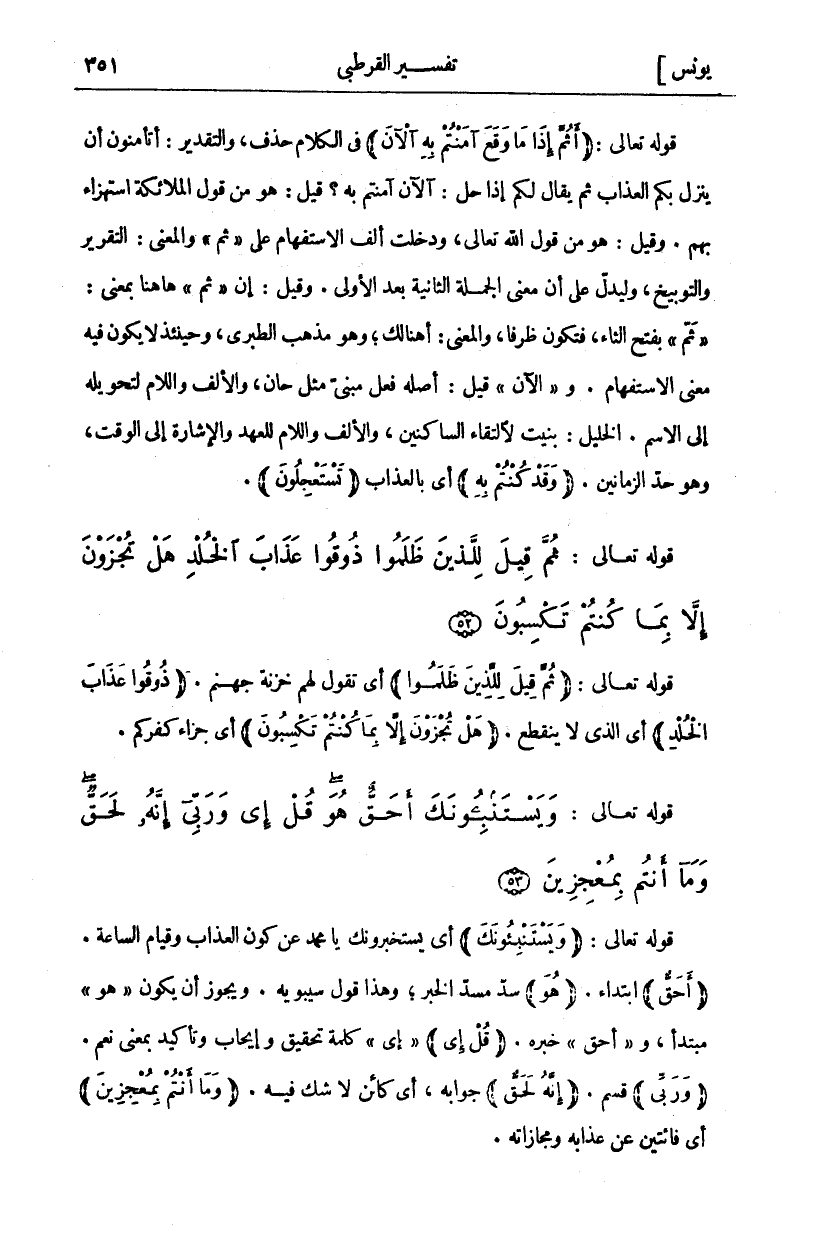 يونس ] تفســير القرطبى ٣٥١
قوله تعالى : ﴿ أَثُمَّ إِذَا مَا وَقَعَ آمَنْتُمْ بِهِ آلْآنَ ﴾ فى الكلام حذف، والتقدير : أتأمنون أن
ينزل بكم العذاب ثم يقال لكم إذا حل : آلآن آمنتم به ؟ قيل : هو من قول الملائكة استهزاء
بهم . وقيل : هو من قول الله تعالى، ودخلت ألف الاستفهام على « ثم » والمعنى : التقرير
والتوبيخ، وليدلّ على أن معنى الجمـلة الثانية بعد الأولى . وقيل : إن « ثم » هاهنا بمعنى :
« ثَمّ » بفتح الثاء، فتكون ظرفا، والمعنى : أهنالك؛ وهو مذهب الطبرى، وحينئذ لا يكون فيه
معنى الاستفهام . و « الآن » قيل : أصله فعل مبنىّ مثل حان، والألف واللام لتحويله
إلى الاسم . الخليل : بنيت لالتقاء الساكنين ، والألف واللام للعهد والإشارة إلى الوقت،
وهو حدّ الزمانين . ﴿ وَقَدْ كُنْتُمْ بِهِ ﴾ أى بالعذاب ﴿ تَسْتَعْجِلُونَ ﴾ .
قوله تعـالى : ثُمَّ قِيلَ لِلَّذِينَ ظَلَمُوا ذُوقُوا عَذَابَ ٱلْخُلْدِ هَلْ تُجْزَوْنَ
إِلَّا بِمَـا كُنتُمْ تَـكْسِبُونَ ۝٥٢
قوله تعـالى : ﴿ ثُمَّ قِيلَ لِلَّذِينَ ظَلَمُـوا ﴾ أى تقول لهم خزنة جهـنم . ﴿ ذُوقُوا عَذَابَ
الْخُلْدِ ﴾ أى الذى لا ينقطع . ﴿ هَلْ تُجْزَوْنَ إِلَّا بِمَا كُنْتُمْ تَكْسِبُونَ ﴾ أى جزاء كفركم .
قوله تعـالى : وَيَسْتَنۢبِـُٔونَكَ أَحَـقٌّ هُوَۖ قُلْ إِى وَرَبِّىٓ إِنَّهُۥ لَحَقٌّۖ
وَمَآ أَنتُم بِمُعْجِزِينَ ۝٥٣
قوله تعالى : ﴿ وَيَسْتَنْبِـئُونَكَ ﴾ أى يستخبرونك يا محمد عن كون العذاب وقيام الساعة .
﴿ أَحَقٌّ ﴾ ابتداء . ﴿ هُوَ ﴾ سدّ مسدّ الخبر؛ وهذا قول سيبويه . ويجوز أن يكون « هو »
مبتدأ ، و « أحق » خبره . ﴿ قُلْ إِى ﴾ « إى » كلمة تحقيق و إيجاب وتأكيد بمعنى نعم .
﴿ وَرَبِّى ﴾ قسم . ﴿ إِنَّهُ لَحَقٌّ ﴾ جوابه ، أى كائن لا شك فيـه . ﴿ وَمَا أَنْتُمْ بِمُعْجِزِينَ ﴾
أى فائتين عن عذابه ومجازاته .